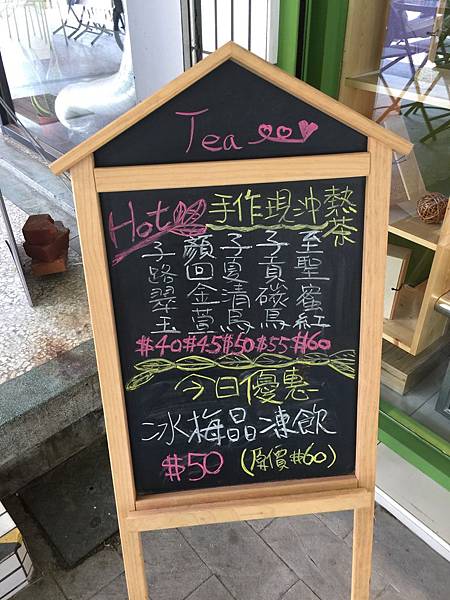 Tea
Hot 手作現沖熱茶
子路翠玉
顏回金萱
子夏清烏
子貢磁烏
至聖蜜紅
$40 $45 $50 $55 $60
今日優惠
冰梅晶凍飲
$50 (原價$60)